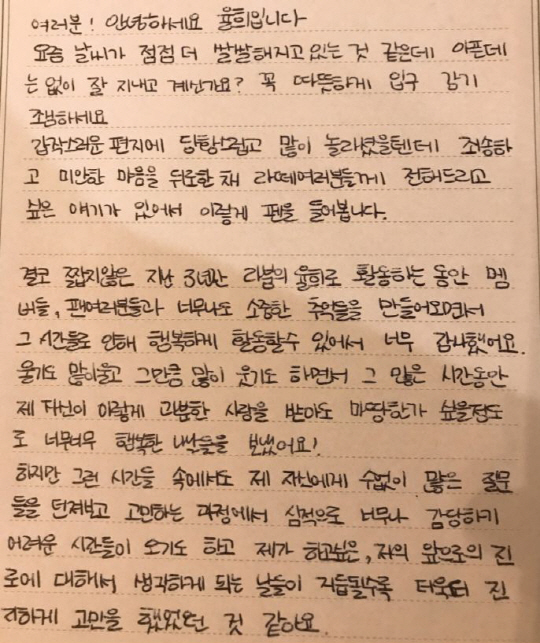 여러분! 안녕하세요 율희입니다
요즘 날씨가 점점 더 쌀쌀해지고 있는 것 같은데 아픈데
는 없이 잘 지내고 계신가요? 꼭 따뜻하게 입구 감기
조심하세요
갑작스러운 편지에 당황스럽고 많이 놀라셨을텐데 죄송하
고 미안한 마음을 뒤로한채 라떼여러분들께 전해드리고
싶은 얘기가 있어서 이렇게 펜을 들어봅니다.
결코 짧지않은 지난 3년간 라붐의 율희로 활동하는 동안 멤
버들, 팬여러분들과 너무나도 소중한 추억들을 만들어오면서
그 시간들로 인해 행복하게 활동할수 있어서 너무 감사했어요.
울기도 많이울고 그만큼 많이 웃기도 하면서 그 많은 시간동안
제 자신이 이렇게 과분한 사랑을 받아도 마땅한가 싶을정도
로 너무너무 행복한 나날들을 보냈어요!
하지만 그런 시간들 속에서도 제 자신에게 수없이 많은 질문
들을 던져보고 고민하는 과정에서 심적으로 너무나 감당하기
어려운 시간들이 오기도 하고 제가 하고싶은, 저의 앞으로의 진
로에 대해서 생각하게 되는 날들이 거듭될수록 더욱더 진
지하게 고민을 했었던 것 같아요.